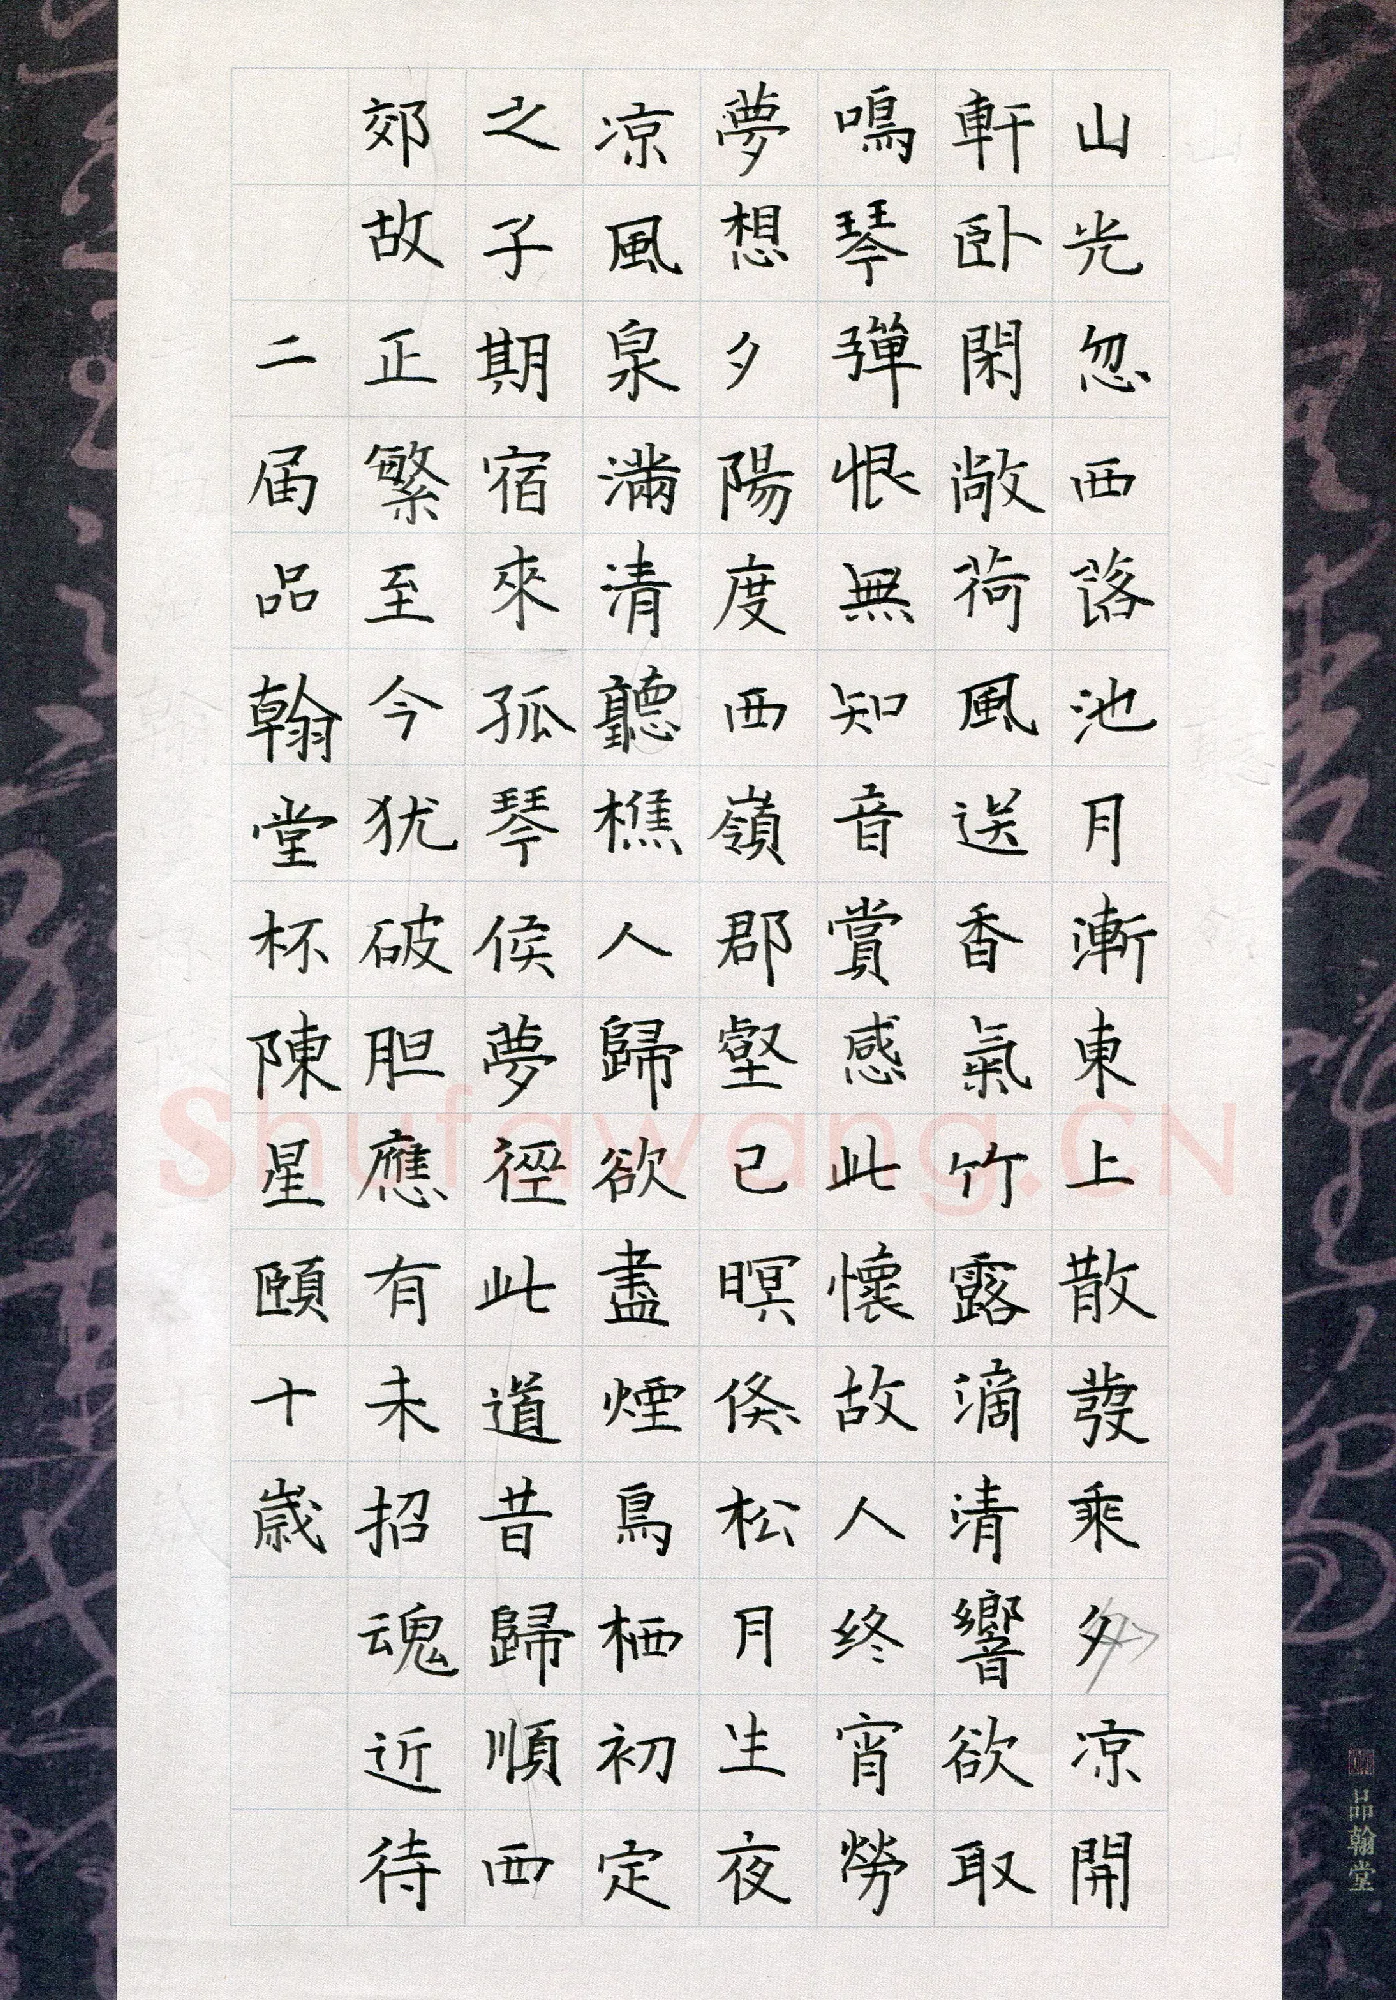 山光忽西落池月漸東上散發乘夕凉開
軒卧閑敞荷風送香氣竹露滴清響欲取
鳴琴彈恨無知音賞感此懷故人终宵勞
夢想夕陽度西嶺郡壑已暝倏松月生夜
凉風泉滿清聽樵人歸欲盡煙鳥栖初定
之子期宿來孤琴侯夢徑此道昔歸順西
郊故正繁至今犹破胆應有未招魂近待
二届品翰堂杯陳星頤十歲
品翰堂
Shufawang.CN